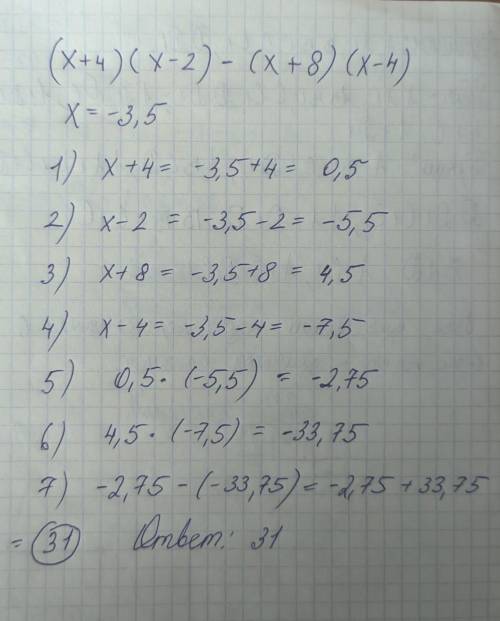 (x+4)(x-2) - (x+8)(x-4)
x = -3,5
1) x+4 = -3,5+4 = 0,5
2) x-2 = -3,5-2 = -5,5
3) x+8 = -3,5+8 = 4,5
4) x-4 = -3,5-4 = -7,5
5) 0,5·(-5,5) = -2,75
6) 4,5·(-7,5) = -33,75
7) -2,75-(-33,75) = -2,75+33,75
= 31 Ответ: 31